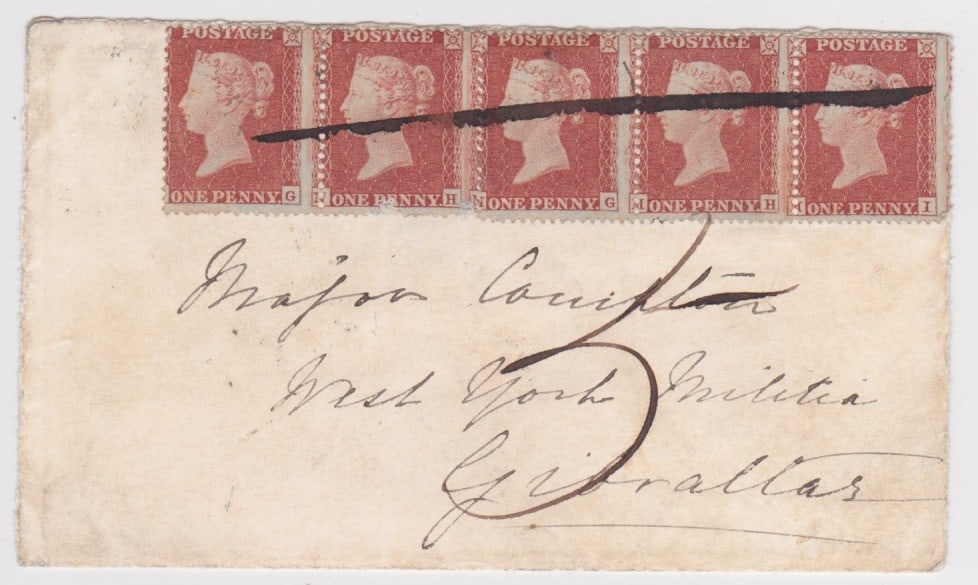 POSTAGE POSTAGE POSTAGE POSTAGE POSTAGE
ONE PENNY G ONE PENNY H N ONE PENNY G ONE PENNY H ONE PENNY I
Major Compton
5
West York Militia
Gibraltar